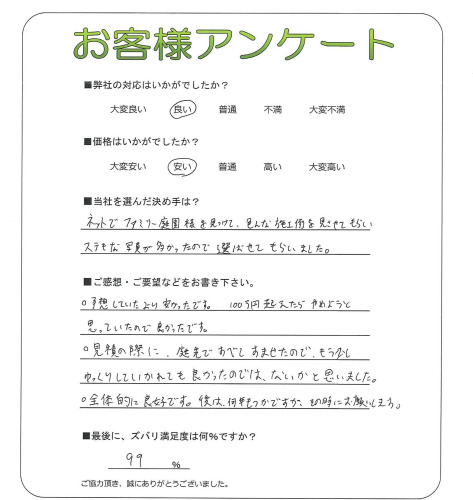 お客様アンケート
■弊社の対応はいかがでしたか?
大変良い 良い 普通 不満 大変不満
■価格はいかがでしたか?
大変安い 安い 普通 高い 大変高い
■当社を選んだ決め手は?
ネットでファミリー庭園様を見つけて、色んな施工術を見させてもらい
ステキな写真が多かったので選ばせてもらいました。
■ご感想・ご要望などをお書き下さい。
○予想していたより安かったです。100万円超えたらやめようと
思っていたので良かったです。
○見積の際に、庭先ですべてすませたので、もう少し
ゆっくりしていかれても良かったのでは、ないかと思いました。
○全体的に良好です。後は、何年もつかですが、その時にお願いします。
■最後に、ズバリ満足度は何%ですか?
99 %
ご協力頂き、誠にありがとうございました。